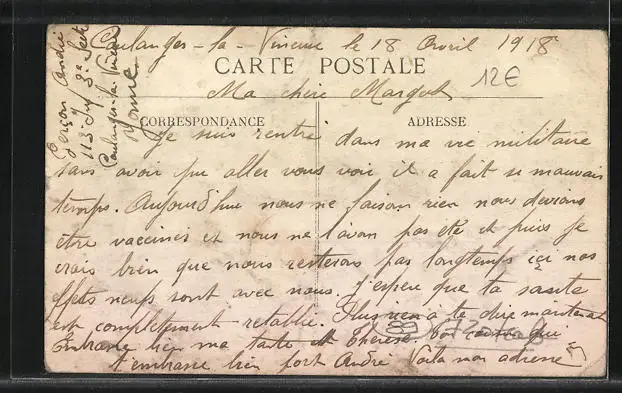 Coulanges-la-Vineuse le 18 Avril 1918
CARTE POSTALE
12€
Ma chère Margot
CORRESPONDANCE
ADRESSE
Je suis rentré dans ma vie militaire
sans avoir pu aller vous voir il a fait si mauvais
temps. Aujourd'hui nous ne faison rien nous devions
être vaccinés et nous ne l'avon pas été et puis je
crois bien que nous resterons pas longtemps içi nos
effets neufs sont avec nous. J'espere que ta santé
est complètement retablie. Plus rien à te dire maintenant
Embrasse bien ma tante et Thérèse. Ton cousin qui
t'embrasse bien fort André Voila mon adresse
André
113 Inf 3e
Coulanges-la-Vineuse
Yonne